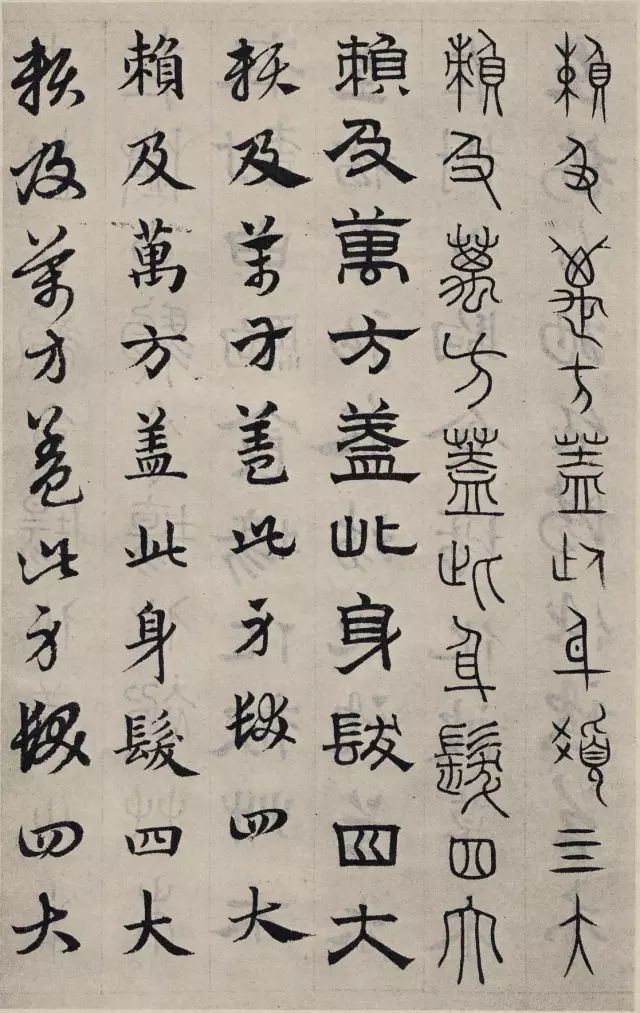 賴及萬方蓋此身髮四大
賴及萬方蓋此身髮四大
賴及萬方蓋此身髮四大
賴及萬方蓋此身髮四大
賴及萬方蓋此身髮四大
賴及萬方蓋此身髮四大